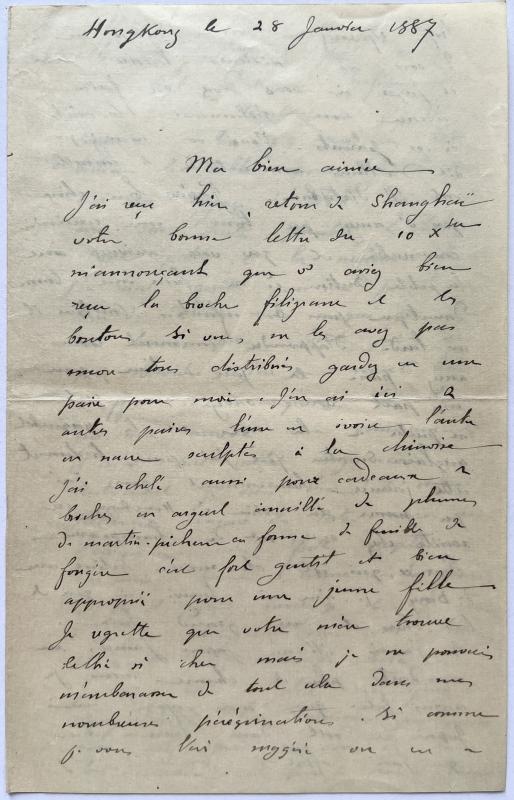 HongKong le 28 Janvier 1887
Ma bien aimée
J'ai reçu hier, retour de Shanghaï
votre bonne lettre du 10 Xbre
m'annonçant que vs aviez bien
reçu la broche filigrane et les
boutons si vous ne les avez pas
encore tous distribués gardez en une
paire pour moi. J'en ai ici 2
autres paires l'une en ivoire l'autre
en nacre sculptés à la chinoise
J'ai acheté aussi pour cadeaux 2
broches en argent émaillé de plumes
de martin-pêcheur en forme de feuille de
fougère c'est fort gentil et bien
approprié pour une jeune fille
Je regrette que votre mère trouve
si cher mais je ne pouvais
m'embarrasser de tout cela dans mes
nombreuses pérégrinations. Si comme
je vous l'ai suggéré on en a